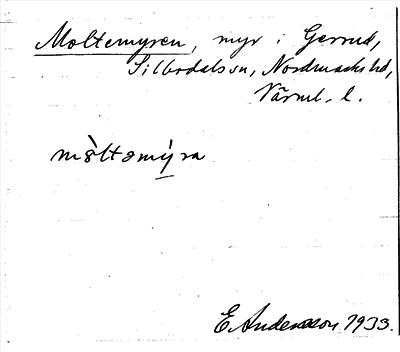 Moltemyren, myr i Gerrud,
Silbodals sn, Nordmarks hd,
Värml. l.
mòltəmy̆ra
E. Andersson 1933.